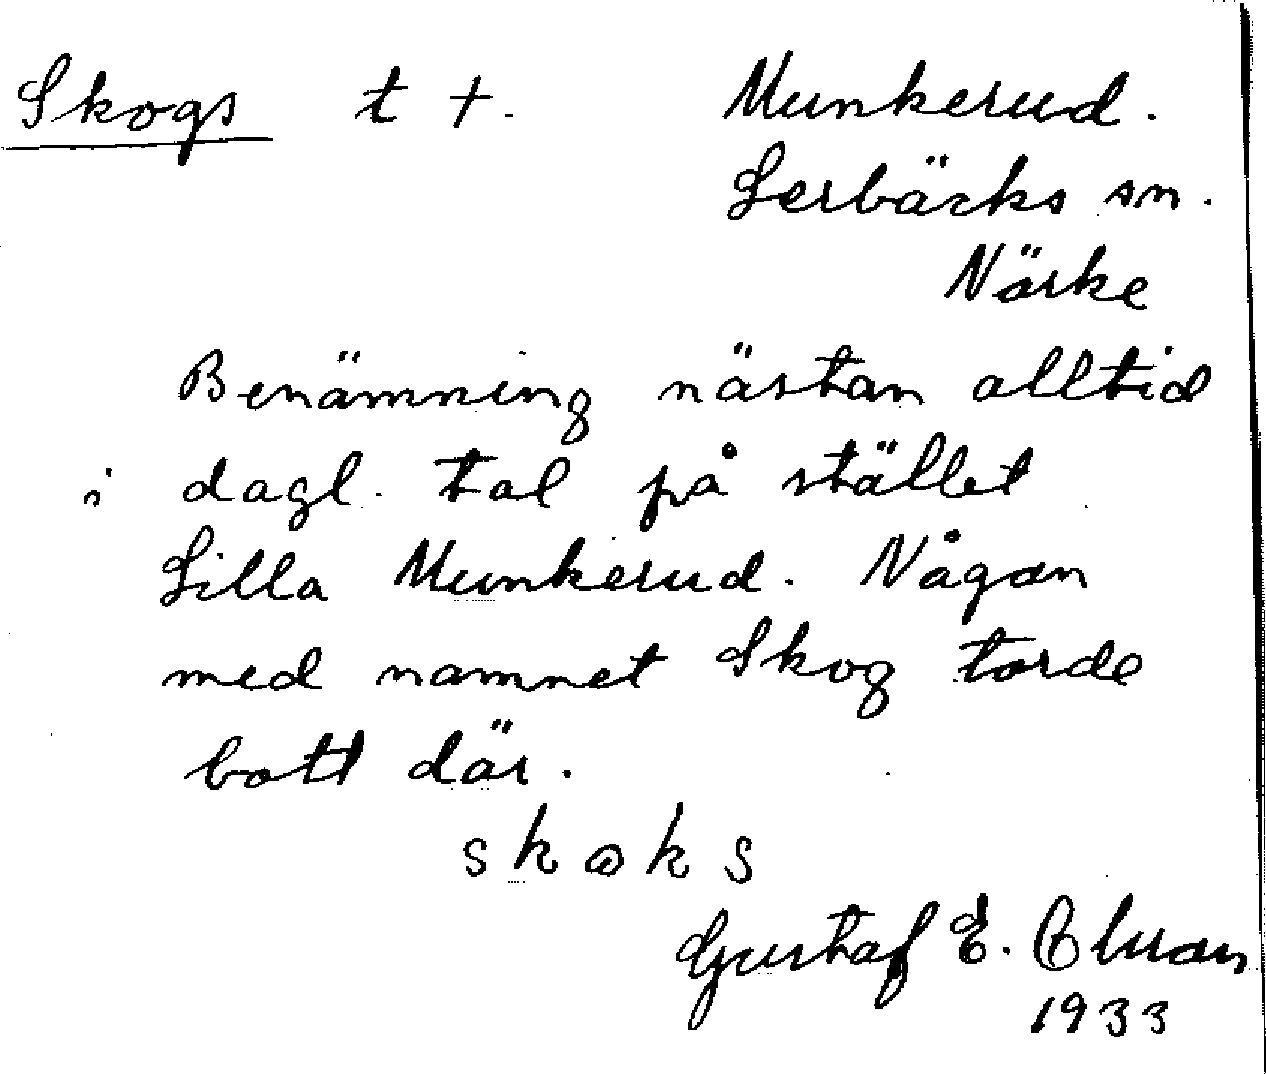 Skogs t +. Munkerud.
Lerbäcks sn.
Närke
Benämning nästan alltid
i dagl. tal på stället
Lilla Munkerud. Någon
med namnet Skog torde
bott där.
Gustaf E.
1933